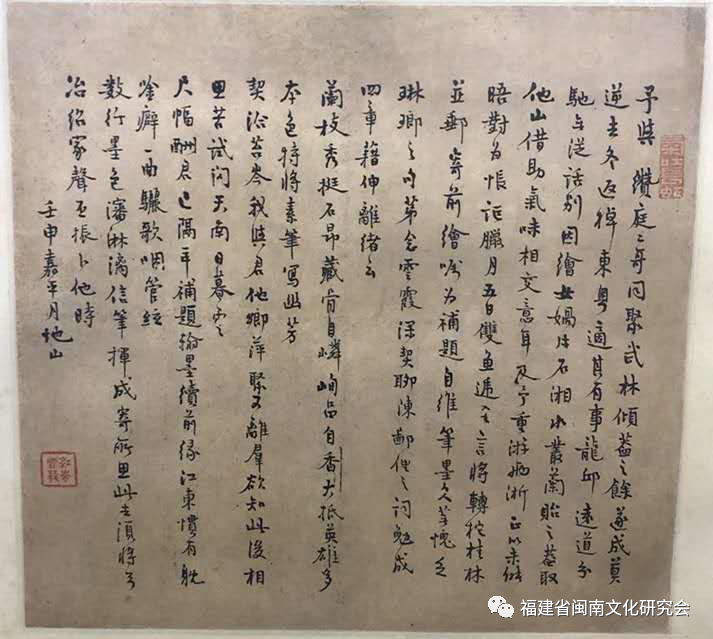 予與纘庭二哥同聚武林傾蓋之餘遂成莫
逆去冬返棹東粵適其有事龍邱遠道分
馳與從話別因繪女媧片石湘水叢蘭貽之蓋取
他山借助氣味相交意耳及予重游柘浙正以未能
晤對為悵詎臘月五日雙魚遞至言將轉柁桂林
並郵寄前繪囑为補題自維筆墨久荒愧乏
琳瑯之句第念雲霞深契聊陳鄙俚之词勉成
四章藉伸離緒云
蘭枝秀挺石昂藏骨自嶙峋品自香大抵英雄多
本色特將素筆寫此芳
契洽苔岑我與君他鄉萍聚又離羣欲知此後相
思苦試问天南日暮雲
尺幅酬君已隔年補題翰墨續前缘江東慣有
金癖一曲驪歌咽管絃
數行墨色瀋淋漓信筆揮成寄所思此去須將弓
冶紹家聲丕振卜他時
壬申嘉平月他山
福建省闽南文化研究会